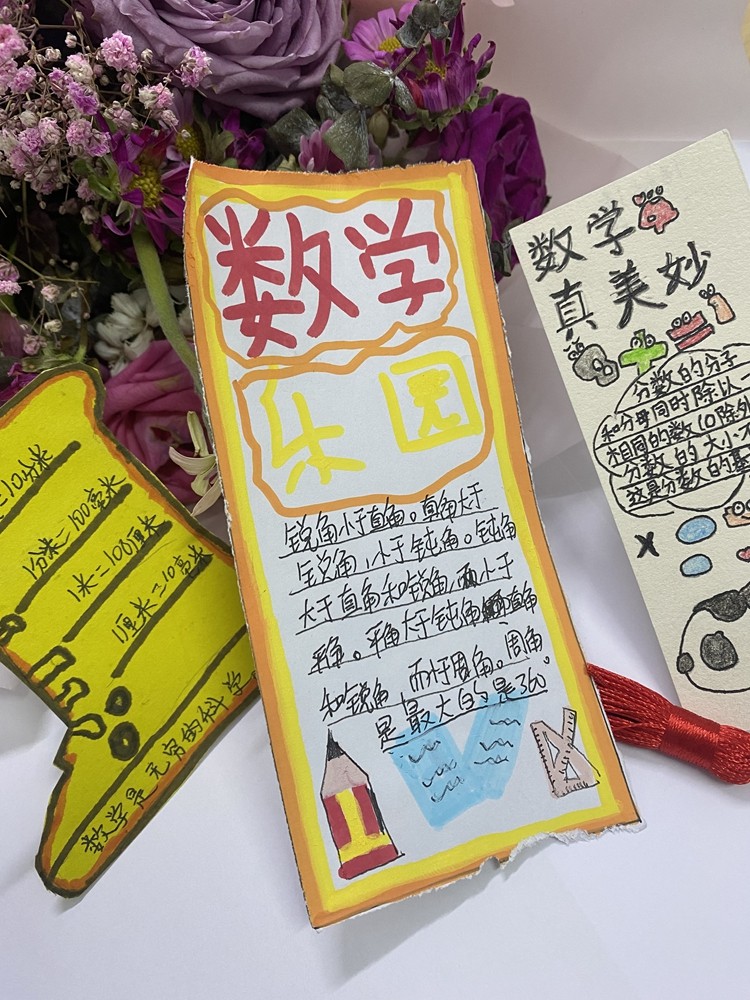 =10分米
1分米=100毫米
1米=100厘米
1厘米=10毫米
数学是无穷的科学
数学
乐园
锐角小于直角。直角大于
锐角,小于钝角。钝角
大于直角和锐角,而小于
平角。平角大于钝角直角
和锐角,而小于周角。周角
是最大的是360°
数学
真美妙
分数的分子
和分母同时除以
相同的数(0除外
分数的大小
这是分数的基